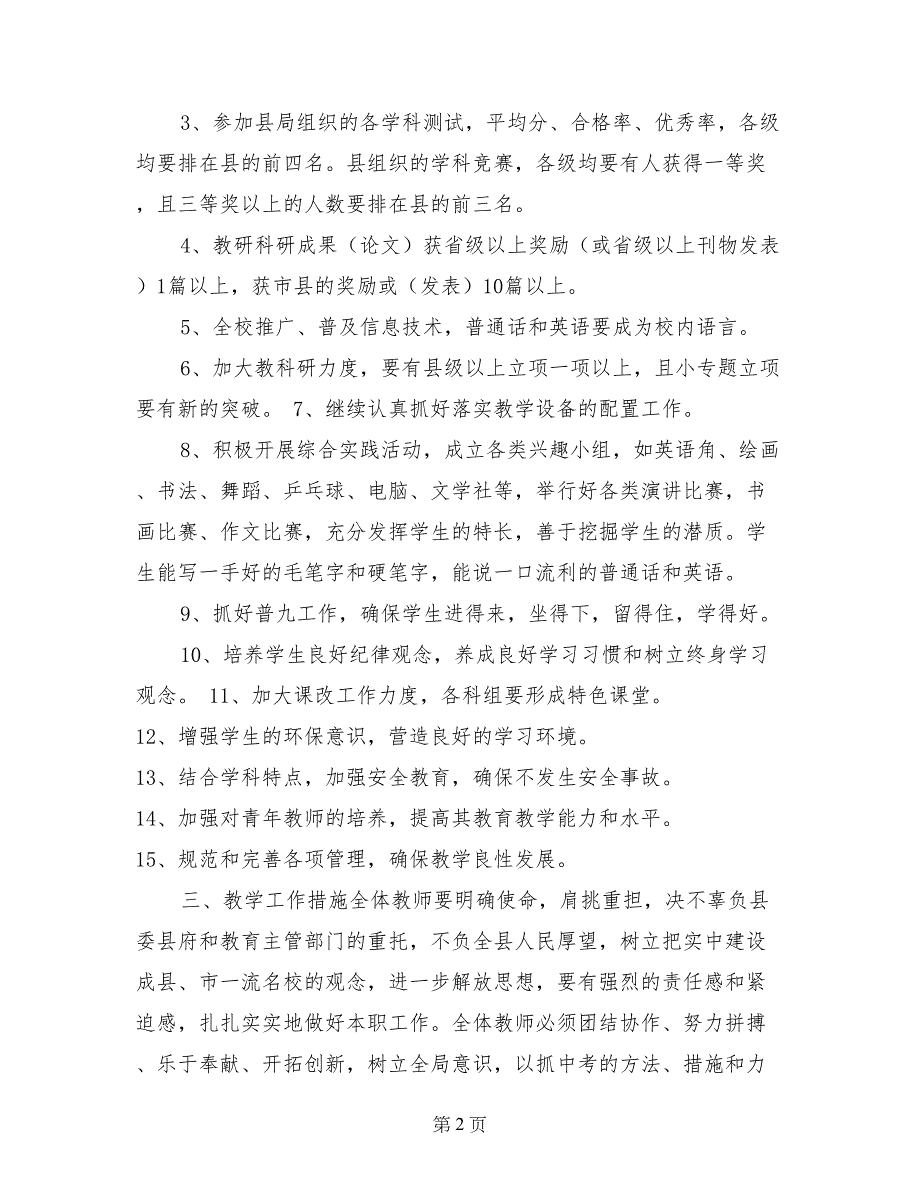 3、参加县局组织的各学科测试，平均分、合格率、优秀率，各级
均要排在县的前四名。县组织的学科竞赛，各级均要有人获得一等奖
，且三等奖以上的人数要排在县的前三名。
4、教研科研成果（论文）获省级以上奖励（或省级以上刊物发表
）1篇以上，获市县的奖励或（发表）10篇以上。
5、全校推广、普及信息技术，普通话和英语要成为校内语言。
6、加大教科研力度，要有县级以上立项一项以上，且小专题立项
要有新的突破。 7、继续认真抓好落实教学设备的配置工作。
8、积极开展综合实践活动，成立各类兴趣小组，如英语角、绘画
、书法、舞蹈、乒乓球、电脑、文学社等，举行好各类演讲比赛，书
画比赛、作文比赛，充分发挥学生的特长，善于挖掘学生的潜质。学
生能写一手好的毛笔字和硬笔字，能说一口流利的普通话和英语。
9、抓好普九工作，确保学生进得来，坐得下，留得住，学得好。
10、培养学生良好纪律观念，养成良好学习习惯和树立终身学习
观念。 11、加大课改工作力度，各科组要形成特色课堂。
12、增强学生的环保意识，营造良好的学习环境。
13、结合学科特点，加强安全教育，确保不发生安全事故。
14、加强对青年教师的培养，提高其教育教学能力和水平。
15、规范和完善各项管理，确保教学良性发展。
三、教学工作措施全体教师要明确使命，肩挑重担，决不辜负县
委县府和教育主管部门的重托，不负全县人民厚望，树立把实中建设
成县、市一流名校的观念，进一步解放思想，要有强烈的责任感和紧
迫感，扎扎实实地做好本职工作。全体教师必须团结协作、努力拼搏
、乐于奉献、开拓创新，树立全局意识，以抓中考的方法、措施和力
第 2 页